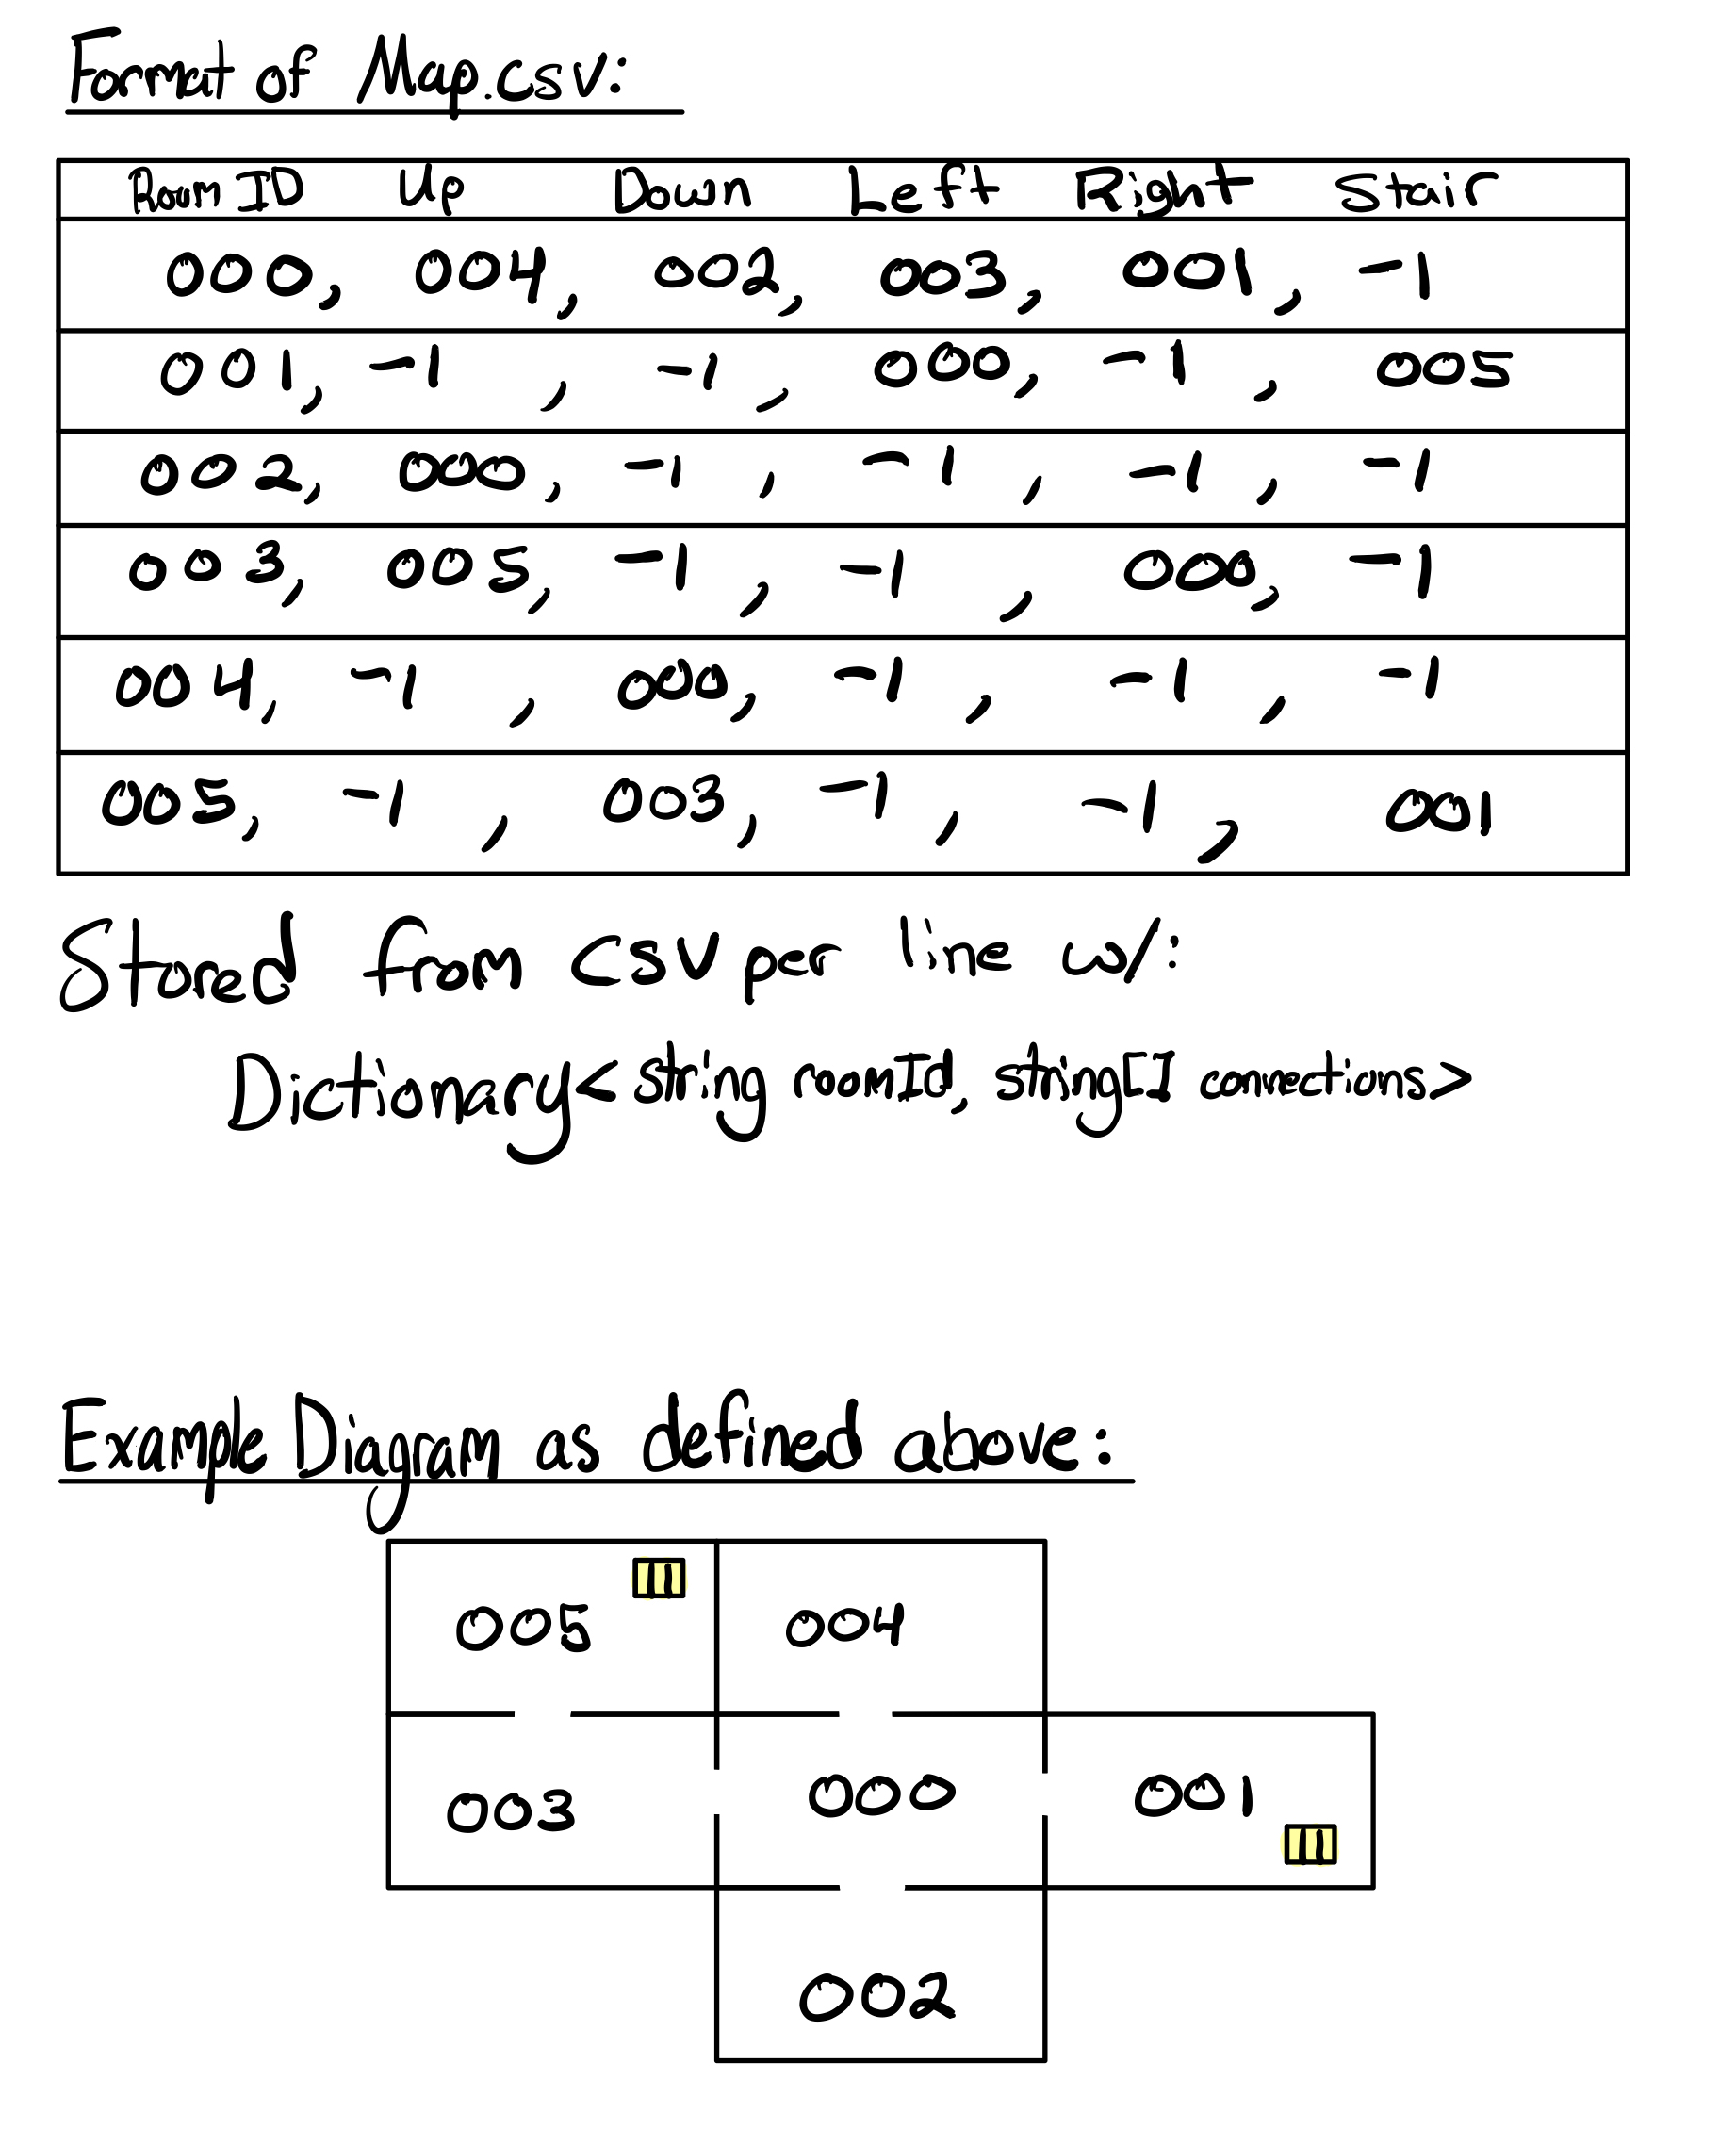 Format of Map.csv:
Room ID Up Down Left Right Stair
000, 004, 002, 003, 001, -1
001, -1, -1, 000, -1, 005
002, 000, -1, -1, -1, -1
003, 005, -1, -1, 000, -1
004, -1, 000, -1, -1, -1
005, -1, 003, -1, -1, 001
Stored from CSV per line w/:
Dictionary<string roomId, string[] connections>
Example Diagram as defined above:
005 004
003 000 001
002